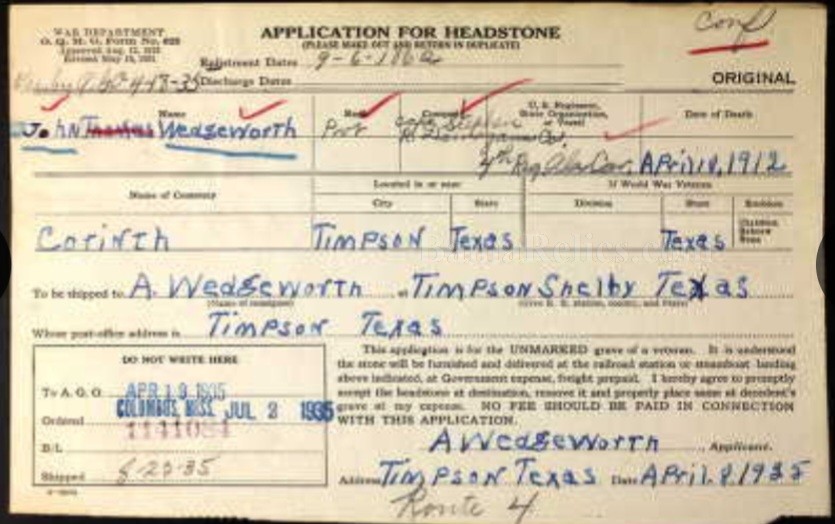 WAR DEPARTMENT
O. Q. M. G. Form No. 623
APPLICATION FOR HEADSTONE
(PLEASE MAKE OUT AND RETURN IN DUPLICATE)
Conf
Enlistment Dates 9-6-186
4-18-35 Discharge Dates
ORIGINAL
Name
Rank
Company
U. S. Regiment, State Organization, or Vessel
Date of Death
John Thomas Wedgeworth
Pvt
Capt Stephen
4th Reg Ala Cav.
April 10, 1912
Name of Cemetery
Located in or near
If World War Veteran
City
State
Division
State
Corinth
Timpson
Texas
Texas
To be shipped to A. Wedgeworth at Timpson Shelby Texas
(Name of consignee)
(Give R. R. station, county, and State)
Whose post-office address is Timpson Texas
DO NOT WRITE HERE
To A. G. O. APR 19 1935
COLUMBUS, MISS. JUL 2 1935
Ordered
B/L
Shipped 8-20-35
This application is for the UNMARKED grave of a veteran. It is understood
the stone will be furnished and delivered at the railroad station or steamboat landing
above indicated, at Government expense, freight prepaid. I hereby agree to promptly
accept the headstone at destination, remove it and properly place same at decedent's
grave at my expense. NO FEE SHOULD BE PAID IN CONNECTION
WITH THIS APPLICATION.
A Wedgeworth, Applicant.
Address Timpson Texas Date April 9 1935
Route 4